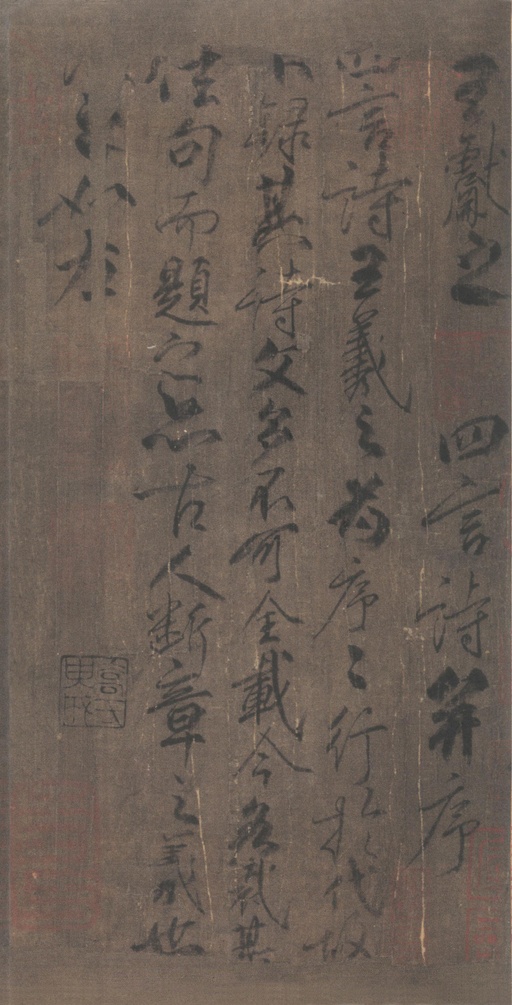 王獻之 四言詩并序
四言詩王羲之為序序行於代故
不錄其詩文多不可全載今各裁其
佳句而題之亦古人斷章之義也